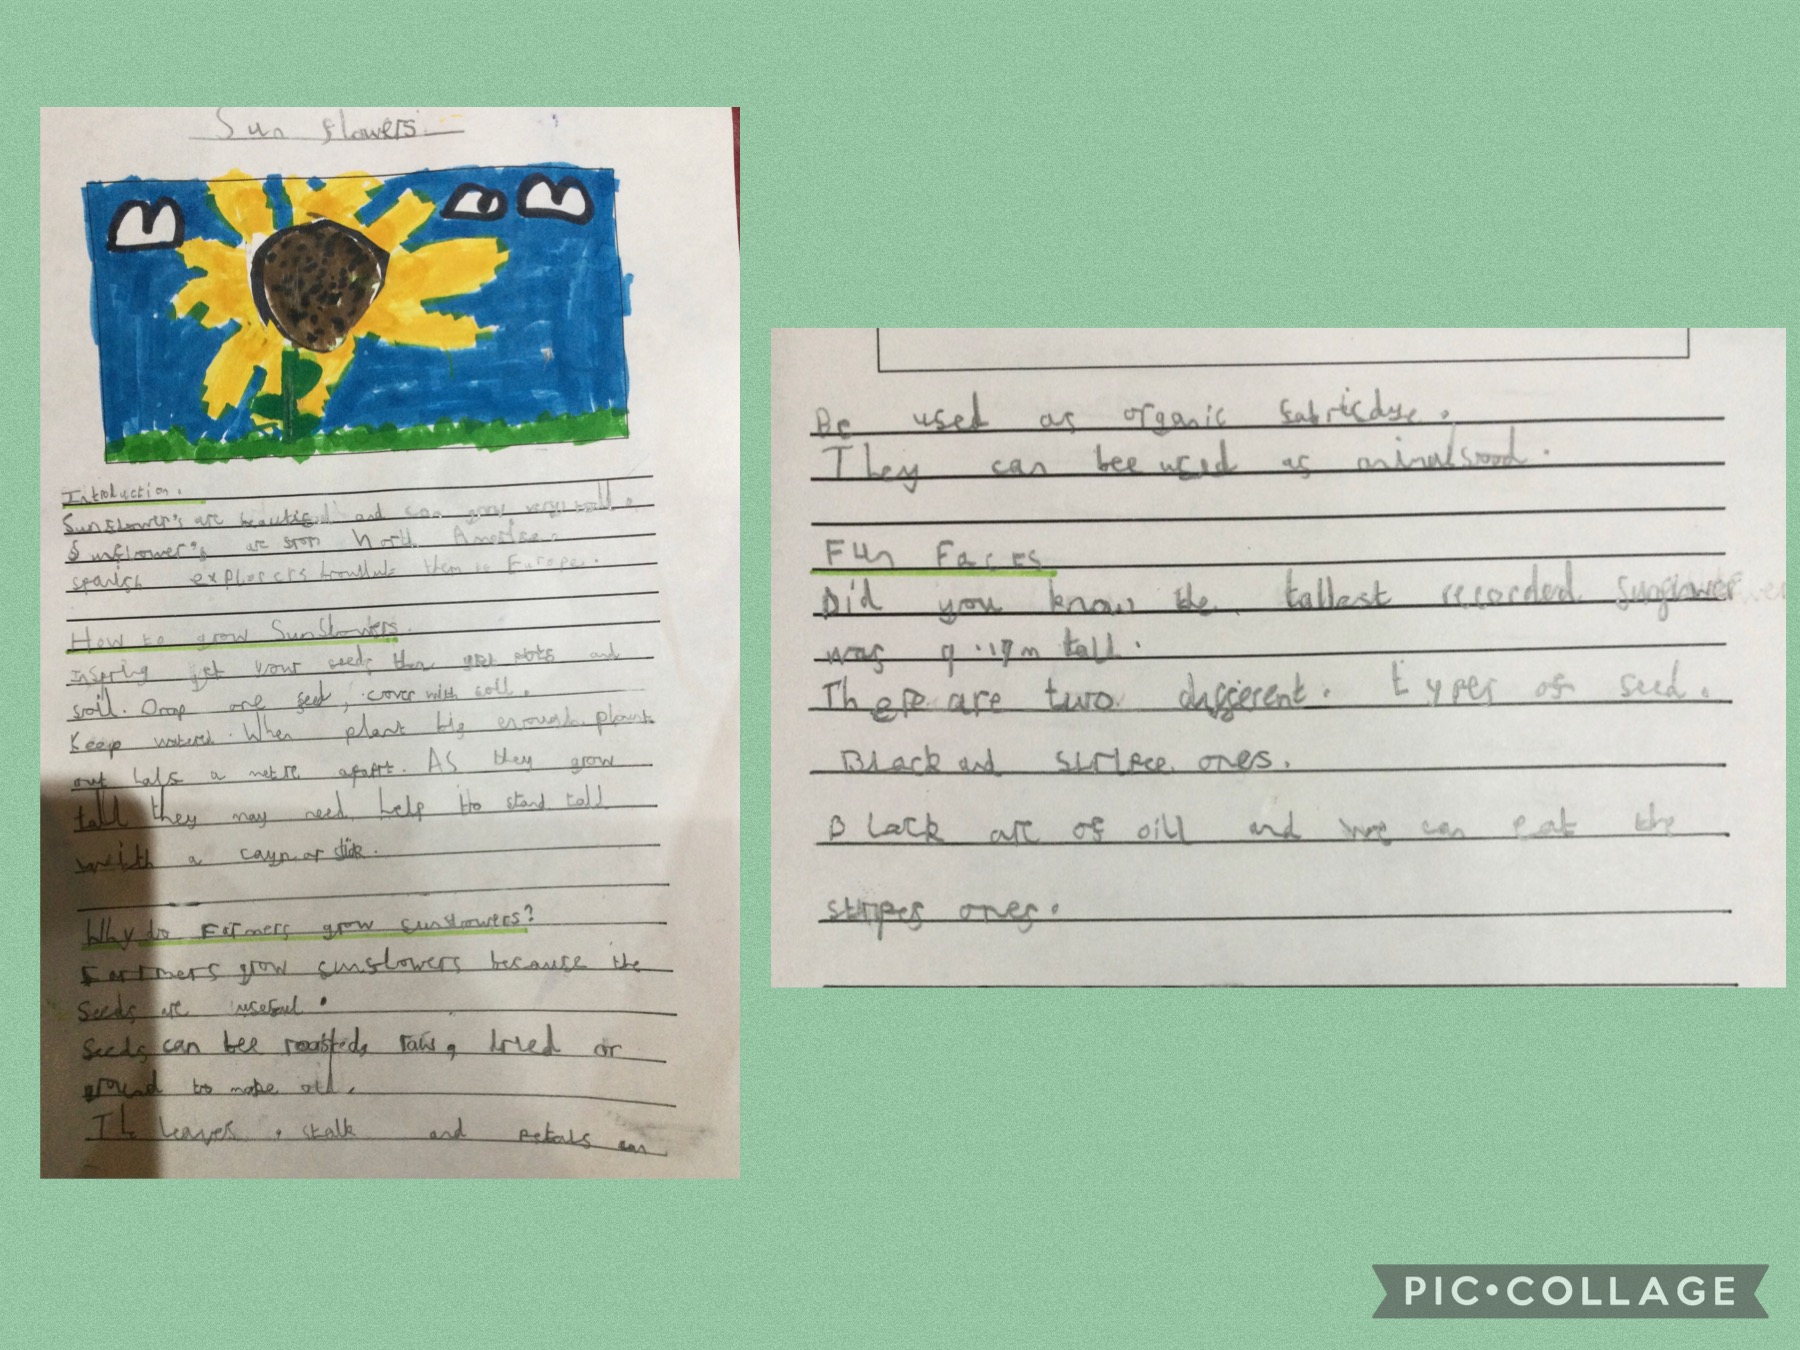 Sun flowers.
Introduction.
Sunflower's are beautiful and can grow very tall.
Sunflower's are from North America.
spanish explorers them to Europe.
How to grow Sunflowers.
In spring get your seeds then get pots and
soil. Drop one seed, cover with soil.
Keep watered. When plant big enough plant
out half a metre apart. As they grow
tall they may need help to stand tall
with a or stick.
Why do Farmers grow sunflowers?
Farmers grow sunflowers because the
Seeds are useful.
Seeds can bee roasted, raw, dried or
ground to make oil.
The leaves, stalk and petals can
Be used as organic fabricdye.
They can bee used as animalfood.
Fun Facts
Did you know the tallest recorded sunflower
was 9.17m tall.
There are two different. types of seed.
Black and stripee ones.
Black are of oill and we can eat the
stripes ones.
PIC•COLLAGE